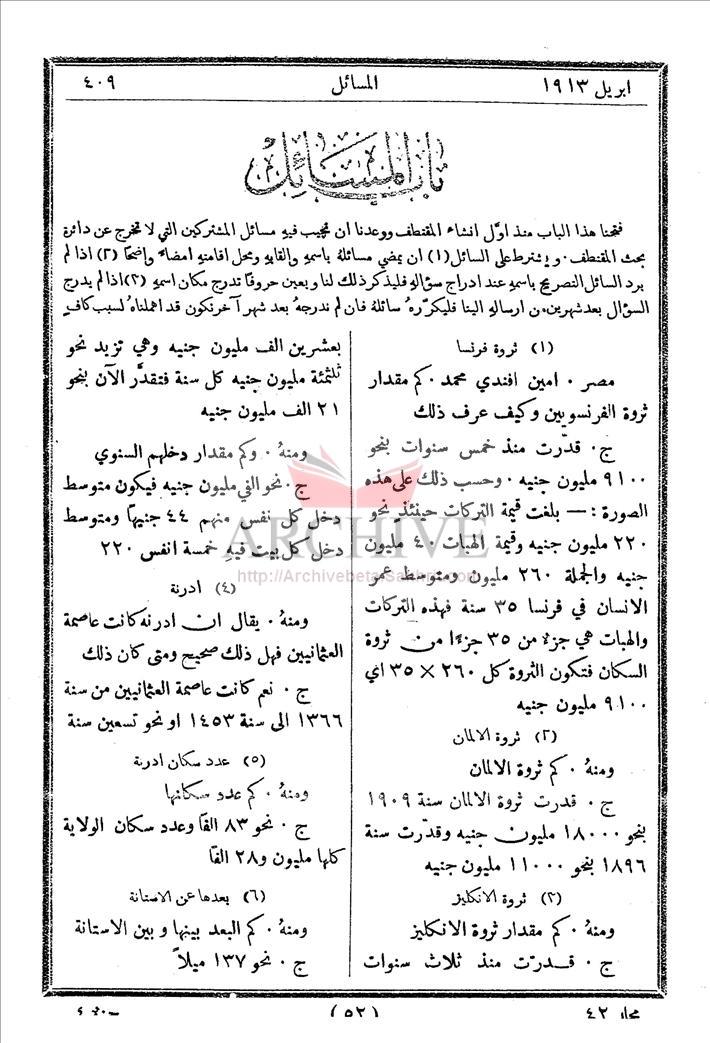 ابريل ١٩١٣
المسائل
٤٠٩
باب المسائل
فتحنا هذا الباب منذ اوّل انشاء المقتطف ووعدنا ان نجيب فيهِ مسائل المشتركين التي لا تخرج عن دائرة
بحث المقتطف . ويشترط على السائل (١) ان يمضي مسائلهُ باسمهِ والقابهِ ومحل اقامتهِ امضاءً واضحًا (٢) اذا لم
يرد السائل التصريح باسمهِ عند ادراج سؤالهِ فليذكر ذلك لنا ويعين حروفًا تدرج مكان اسمهِ (٣) اذا لم يدرج
السؤال بعد شهرين من ارسالهِ الينا فليكرّرهُ سائلهُ فان لم ندرجهُ بعد شهر آخر نكون قد اهملناهُ لسبب كافٍ
(١) ثروة فرنسا
مصر . امين افندي محمد . كم مقدار
ثروة الفرنسويين وكيف عرف ذلك
ج . قدّرت منذ خمس سنوات بنحو
٩١٠٠ مليون جنيه . وحسب ذلك على هذه
الصورة : — بلغت قيمة التركات حينئذ نحو
٢٢٠ مليون جنيه وقيمة الهبات ٤٠ مليون
جنيه والجملة ٢٦٠ مليون ومتوسط عمر
الانسان في فرنسا ٣٥ سنة فهذه التركات
والهبات هي جزء من ٣٥ جزءًا من ثروة
السكان فتكون الثروة كل ٢٦٠ × ٣٥ اي
٩١٠٠ مليون جنيه
(٢) ثروة الالمان
ومنهُ . كم ثروة الالمان
ج . قدرت ثروة الالمان سنة ١٩٠٩
بنحو ١٨٠٠٠ مليون جنيه وقدّرت سنة
١٨٩٦ بنحو ١١٠٠٠ مليون جنيه
(٣) ثروة الانكليز
ومنهُ . كم مقدار ثروة الانكليز
ج . قدرت منذ ثلاث سنوات
بعشرين الف مليون جنيه وهي تزيد نحو
ثلثمئة مليون جنيه كل سنة فتقدَّر الآن بنحو
٢١ الف مليون جنيه
ومنهُ . وكم مقدار دخلهم السنوي
ج . نحو الفي مليون جنيه فيكون متوسط
دخل كل نفس منهم ٤٤ جنيهًا ومتوسط
دخل كل بيت فيهِ خمسة انفس ٢٢٠
(٤) ادرنة
ومنهُ . يقال ان ادرنه كانت عاصمة
العثمانيين فهل ذلك صحيح ومتى كان ذلك
ج . نعم كانت عاصمة العثمانيين من سنة
١٣٦٦ الى سنة ١٤٥٣ او نحو تسعين سنة
(٥) عدد سكان ادرنة
ومنهُ . كم عدد سكانها
ج . نحو ٨٣ الفًا وعدد سكان الولاية
كلها مليون و ٢٨ الفًا
(٦) بعدها عن الاستانة
ومنهُ . كم البعد بينها وبين الاستانة
ج . نحو ١٣٧ ميلاً
ARCHIVE
http://Archivebeta.Sakhrit.com
مجلد ٤٢
(٥٢)
جزء ٤